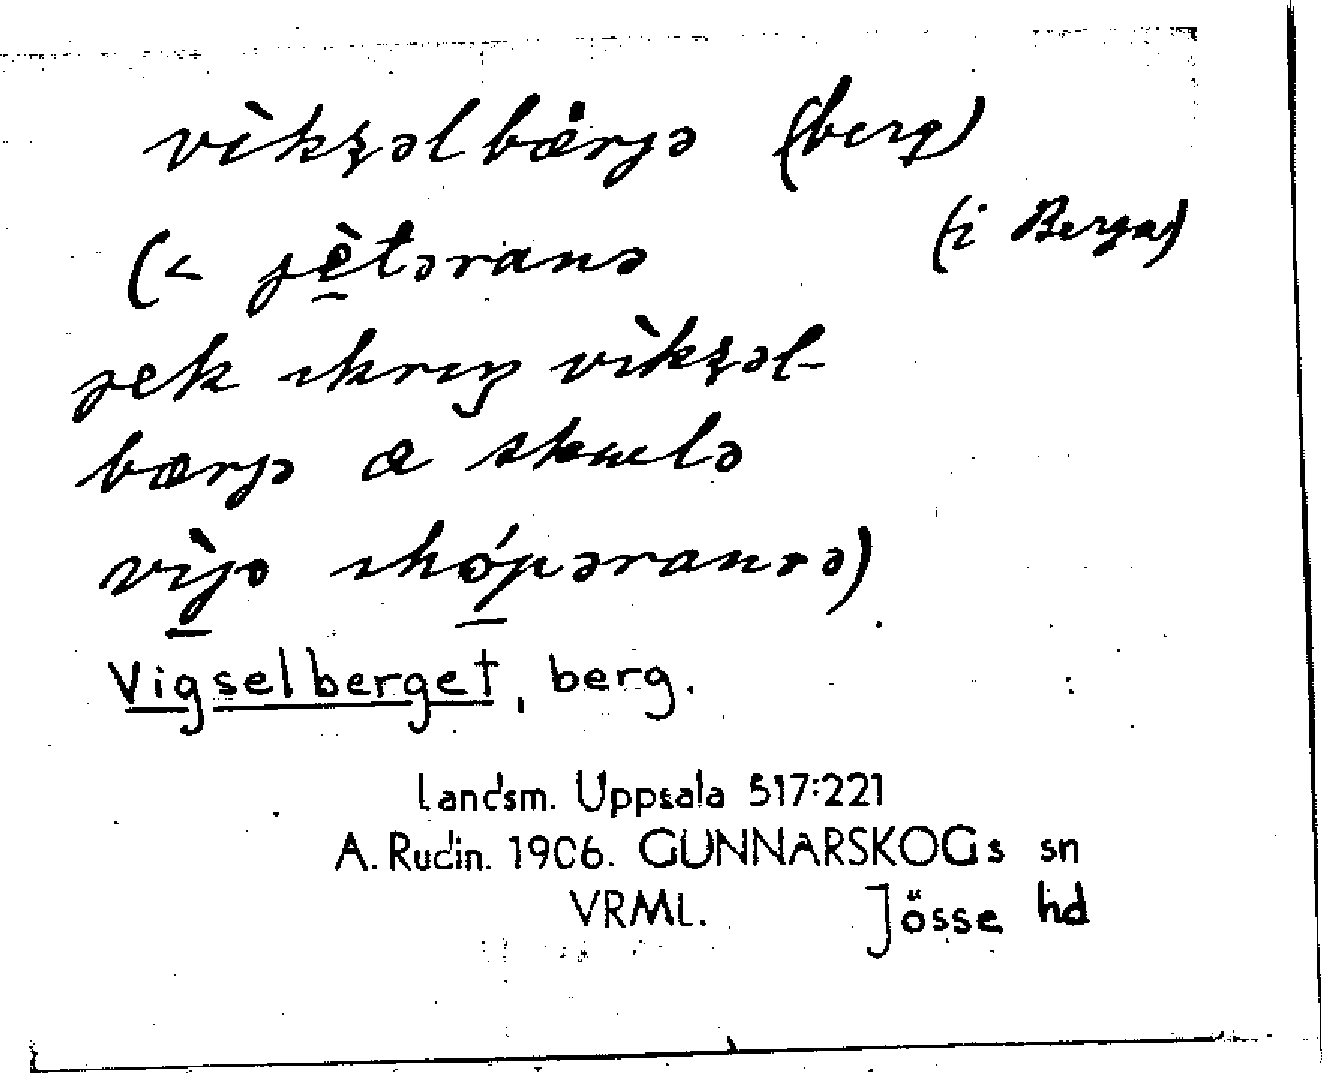 vìkʂəlbærjə (berg)
(i Berga)
(< jètərans
jek ikriŋ vìkʂəl-
bærjə æ skuulə
vìjə ihópəransə)
Vigselberget, berg.
Landsm. Uppsala 517:221
A. Rudin. 1906. GUNNARSKOGs sn
VRML. Jösse hd